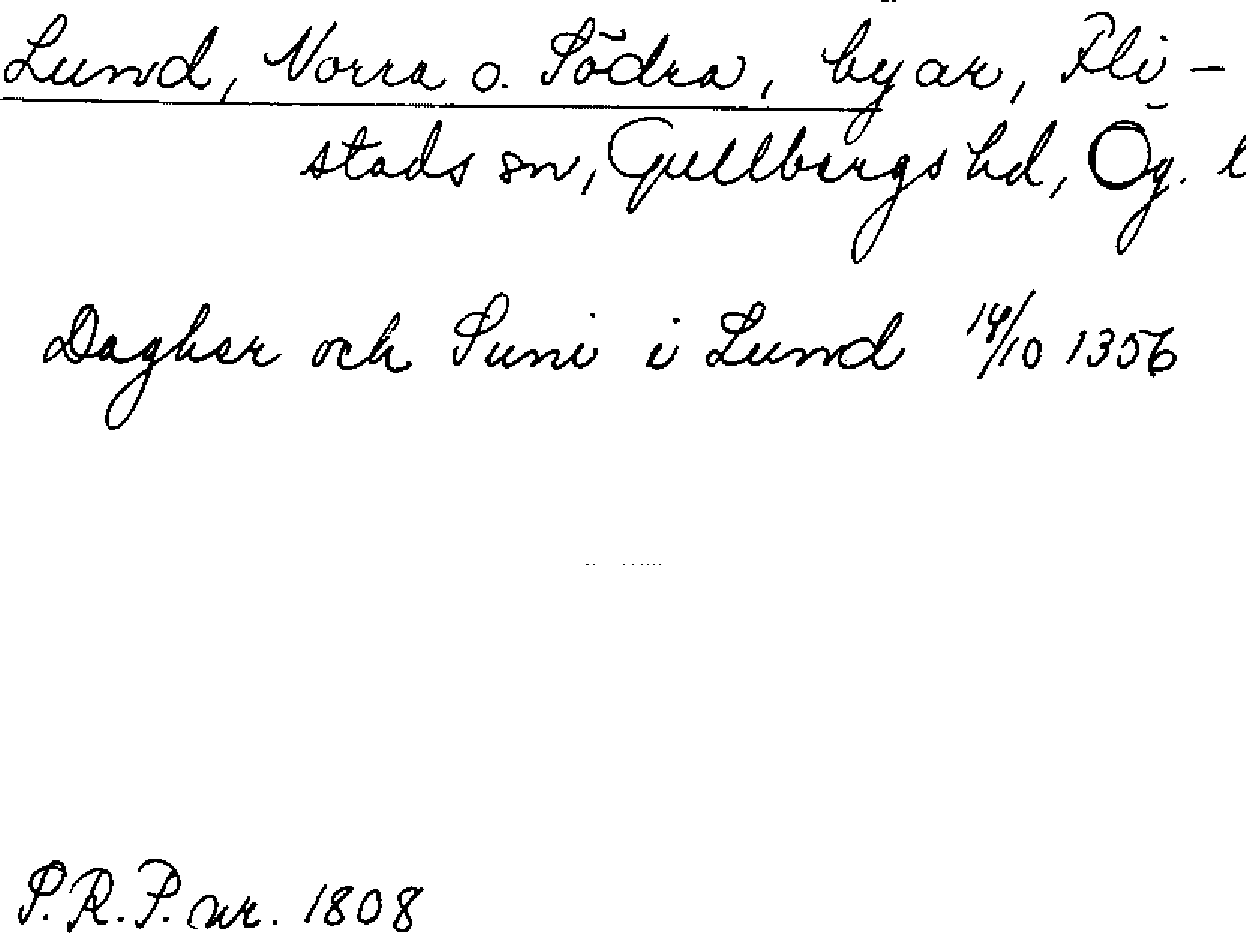 Lund, Norra o. Södra, byar, Fli-
stads sn, Gullbergs hd, Ög. l
Dagher och Suni i Lund 14/10 1356
S.R.P. nr. 1808